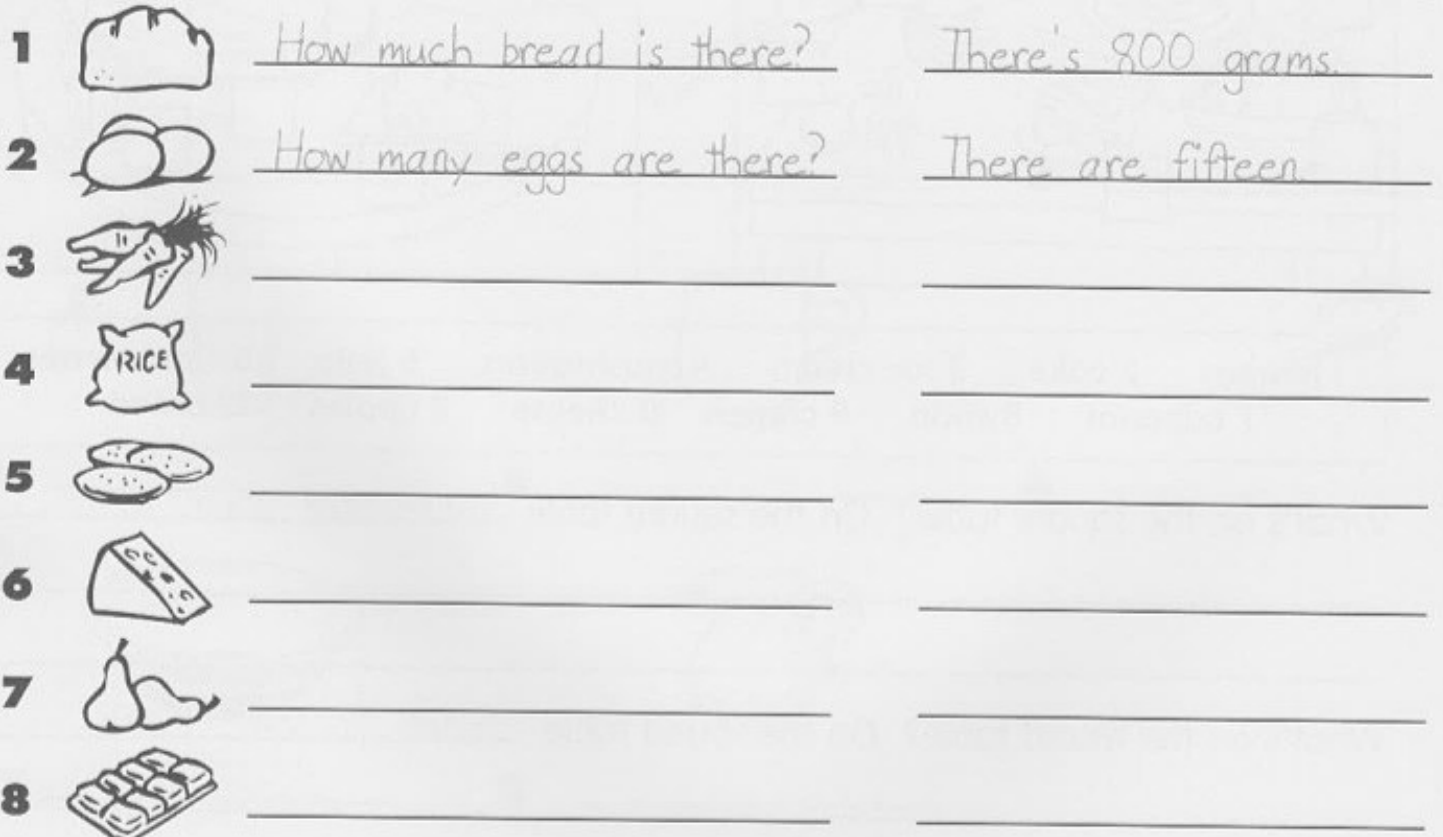 1 How much bread is there? There's 800 grams.
2 How many eggs are there? There are fifteen.
3
4 RICE
5
6
7
8